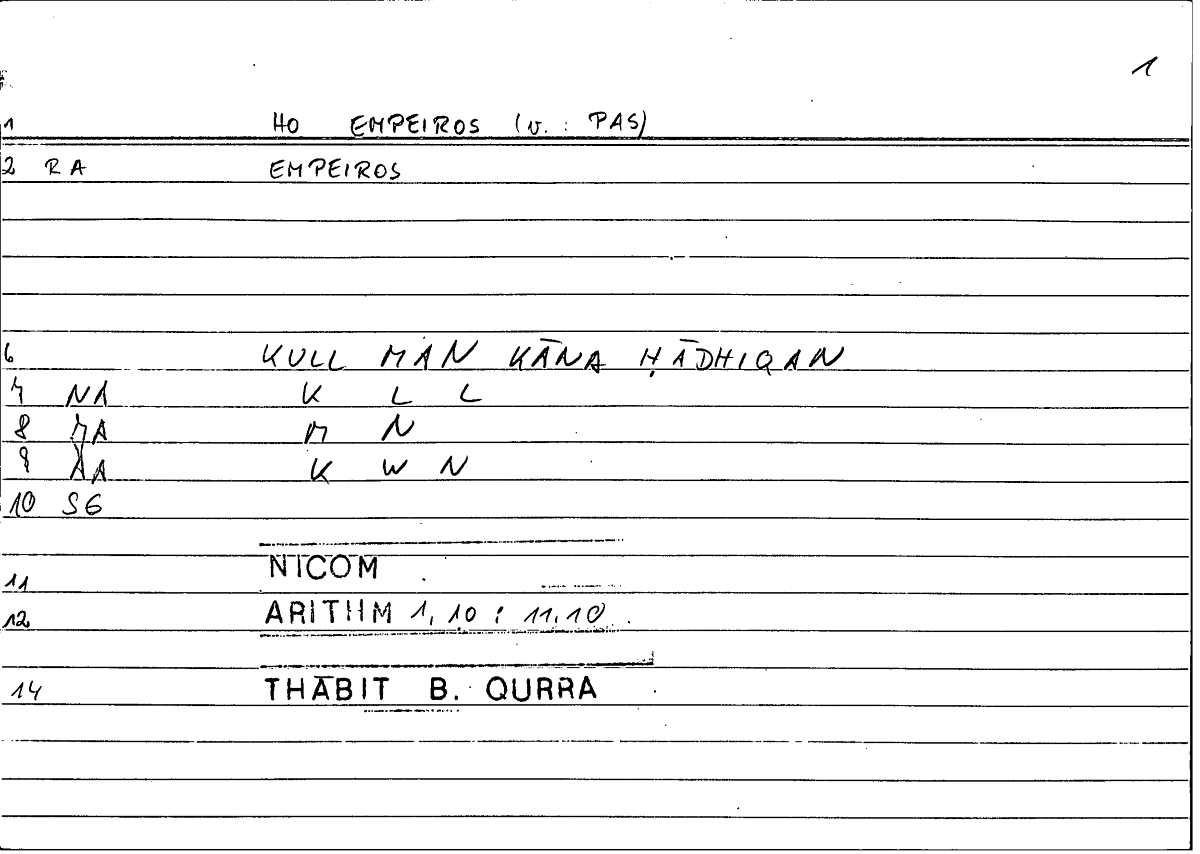 1
1 HO EMPEIROS (v. : PAS)
2 RA EMPEIROS
6 KULL MAN KĀNA ḤĀDHIQAN
7 NA K L L
8 MN
9 AA K W N
10 SG
11 NICOM
12 ARITHM 1, 10 : 11.10
14 THĀBIT B. QURRA